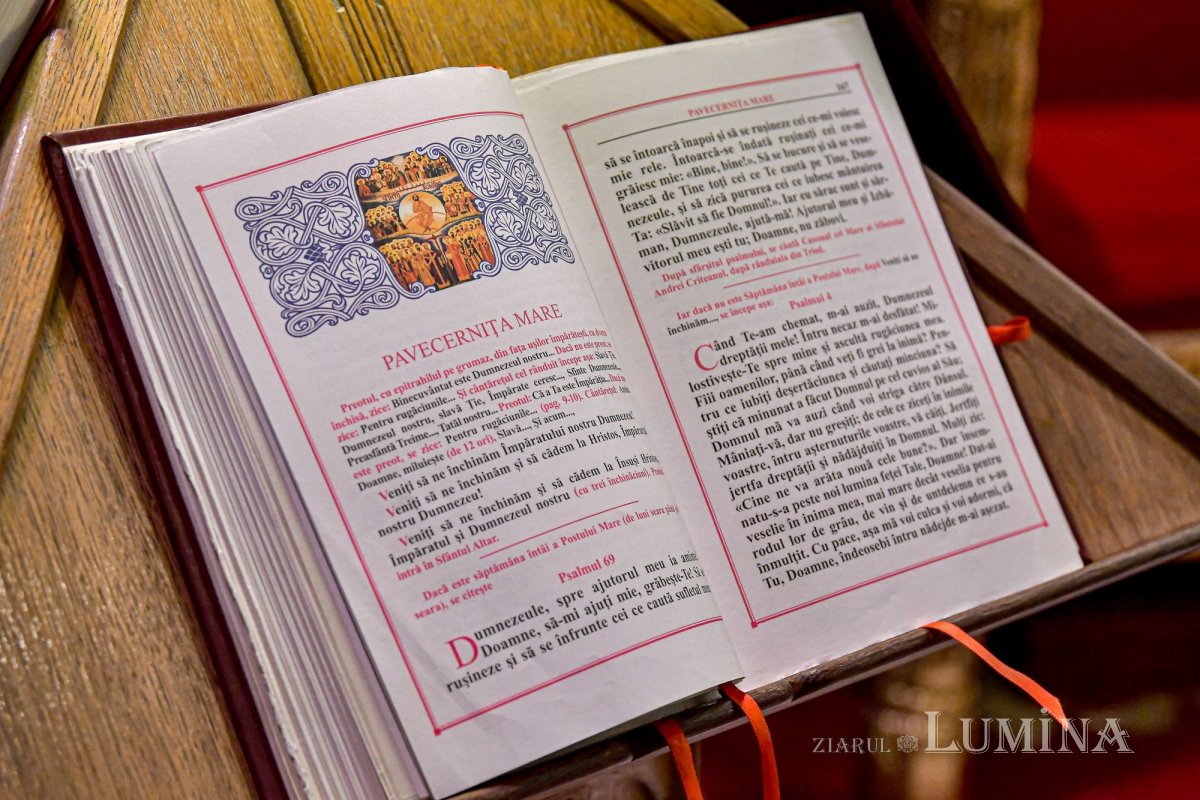 PAVECERNIȚA MARE
Preotul, cu epitrahilul pe grumaz, din fața ușilor împărătești, cu dvera
închisă, zice: Binecuvântat este Dumnezeul nostru... Dacă nu este preot, se
zice: Pentru rugăciunile... Și cântărețul cel rânduit începe așa: Slavă Ție,
Dumnezeul nostru, slavă Ție, Împărate ceresc..., Sfinte Dumnezeule...,
Preasfântă Treime..., Tatăl nostru... Preotul: Că a Ta este Împărăția... Dacă nu
este preot, se zice: Pentru rugăciunile... (pag. 9-10). Cântărețul: Amin.
Doamne, miluiește (de 12 ori), Slavă..., Și acum...,
Veniți să ne închinăm Împăratului nostru Dumnezeu!
Veniți să ne închinăm și să cădem la Hristos, Împăratul
nostru Dumnezeu!
Veniți să ne închinăm și să cădem la Însuși Hristos,
Împăratul și Dumnezeul nostru (cu trei închinăciuni). Preotul
intră în Sfântul Altar.
Dacă este săptămâna întâi a Postului Mare (de luni seara până
seara), se citește
Psalmul 69
Dumnezeule, spre ajutorul meu ia aminte!
Doamne, să-mi ajuți mie, grăbește-Te! Să
rușineze și să se înfrunte cei ce caută sufletul meu
PAVECERNIȚA MARE 347
să se întoarcă înapoi și să se rușineze cei ce-mi voiesc
mie rele. Întoarcă-se îndată rușinați cei ce-mi
grăiesc mie: «Bine, bine!». Să se bucure și să se vese-
lească de Tine toți cei ce Te caută pe Tine, Dum-
nezeule, și să zică pururea cei ce iubesc mântuirea
Ta: «Slăvit să fie Domnul!». Iar eu sărac sunt și săr-
man, Dumnezeule, ajută-mă! Ajutorul meu și Izbă-
vitorul meu ești tu; Doamne, nu zăbovi.
După sfârșitul psalmului, se cântă Canonul cel Mare al Sfântului
Andrei Criteanul, după rânduiala din Triod.
Iar dacă nu este Săptămâna întâi a Postului Mare, după Veniți să ne
închinăm..., se începe așa: Psalmul 4
Când Te-am chemat, m-ai auzit, Dumnezeul
dreptății mele! Întru necaz m-ai desfătat! Mi-
lostivește-Te spre mine și ascultă rugăciunea mea.
Fiii oamenilor, până când veți fi grei la inimă? Pen-
tru ce iubiți deșertăciunea și căutați minciuna? Și
știți că minunat a făcut Domnul pe cel cuvios al Său;
Domnul mă va auzi când voi striga către Dânsul.
Mâniați-vă, dar nu greșiți; de cele ce ziceți în inimile
voastre, întru așternuturile voastre, vă căiți. Jertfiți
jertfa dreptății și nădăjduiți în Domnul. Mulți zic:
«Cine ne va arăta nouă cele bune?». Dar însem-
natu-s-a peste noi lumina feței Tale, Doamne! Dat-ai
veselie în inima mea, mai mare decât veselia pentru
rodul lor de grâu, de vin și de untdelemn ce s-au
înmulțit. Cu pace, așa mă voi culca și voi adormi, că
Tu, Doamne, îndeosebi întru nădejde m-ai așezat.
ZIARUL LUMINA